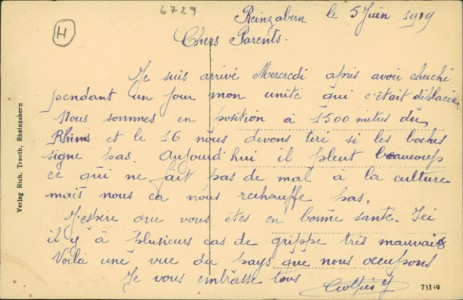 6729
H
Reinzabern le 5 Juin 1919
Chers Parents.
Je suis arrivé Mercredi après avoir cherché
pendant un jour mon unité qui c'était déplacée
Nous sommes en position à 1500 mètres du
Rhins et le 16 nous devons tiré si les boches
signe pas. Aujourd'hui il pleut beaucoup
ce qui ne fait pas de mal à la culture
mais nous ca nous rechauffe pas.
J'espère que vous êtes en bonne santé. Ici
il y à plusieurs cas de grippe très mauvais
Voilà une vue du pays que nous occupons
Je vous embrasse tous
Verlag Rich. Trauth, Rheinzabern